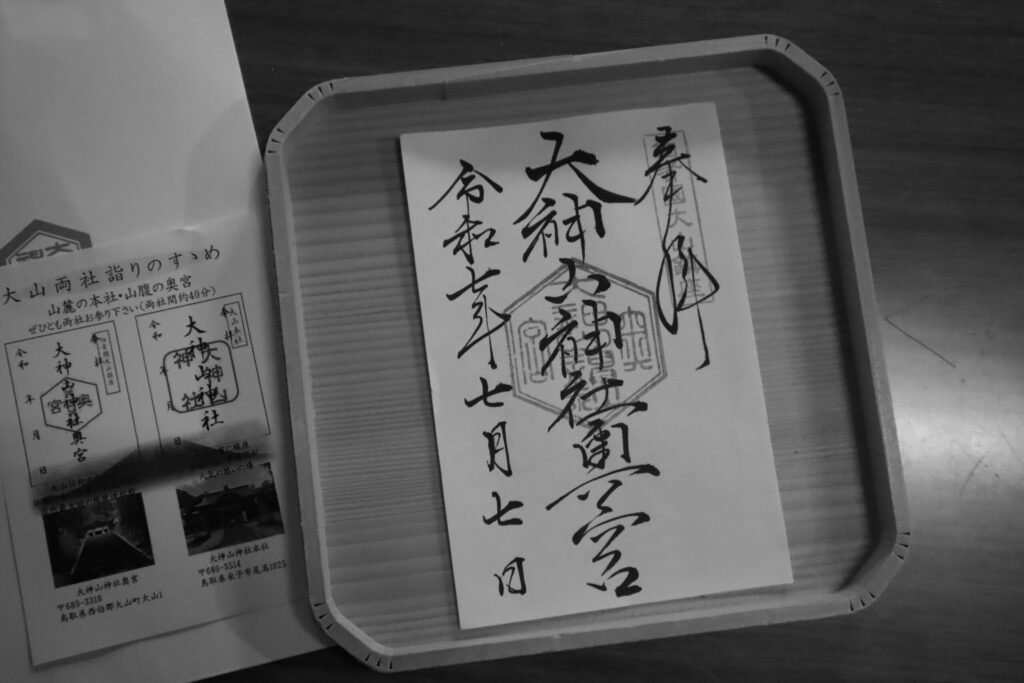 奉拝
大神山神社奥宮
令和七年七月七日
奥宮
大山両社詣りのすゝめ
山麓の本社・山腹の奥宮
ぜひとも両社お参り下さい(両社間約40分)
奉拝
大神山神社奥宮
令和 年 月 日
大山本社
奉拝
大神山神社
令和 年 月 日
大神山神社奥宮
〒689-3318
鳥取県西伯郡大山町大山1
大神山神社本社
〒689-3514
鳥取県米子市尾高1025